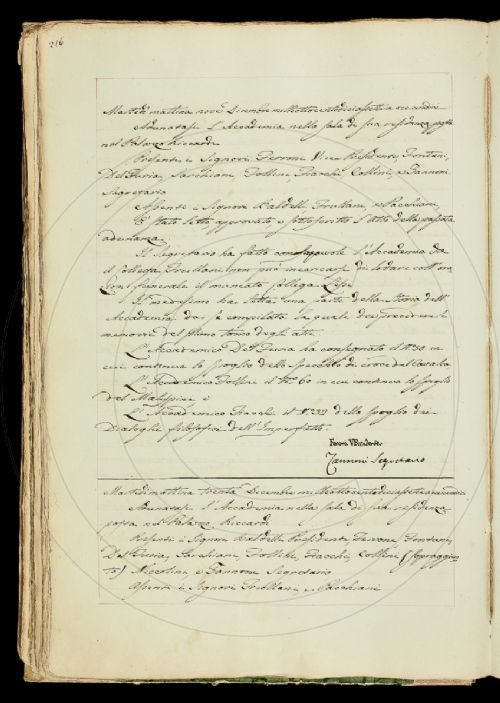 216
Martedì mattina nove Dicembre milleottocentodiciassette a ore undici
Adunatasi l'Accademia nella sala di sua residenza posta
nel Palazzo Riccardi
Presenti i Signori Ferroni V. Presidente, Fontani,
Del Furia, Sarchiani, Follini, Fiacchi, Collini, e Zannoni
Segretario
Assenti i Signori Baldelli Frullani, e Pacchiani,
È stato letto, approvato, e sottoscritto l'atto della passata
adunanza
Il Segretario ha fatto consapevole l'Accademia che
il Collega Frullani non può incaricarsi di lodare coll'ora
zione funerale il mancato Collega
Il medesimo ha letta una parte della Storia dell'
Accademia da se compilata la quale dee precedere le
memorie del primo tomo degli atti
L'Accademico Del Furia ha consegnato il N. 30 in
cui continua lo spoglio dello Specchio di croce del Cavalca
L'Accademico Follini il N. 60 in cui continua lo spoglio
del Malispini e
L'Accademico Fiacchi il N. 239 dello spoglio dei
Dialoghi filosofici dell'Imperfetto.
Ferroni V. Presidente
Zannoni Segretario
Martedì mattina trenta Dicembre milleottocentodiciassette a ore undici
Adunatasi l'Accademia nella sala di sua residenza
posta nel Palazzo Riccardi
Presenti i Signori Baldelli Presidente, Ferroni, Fontani,
Del Furia, Sarchiani, Follini, Fiacchi, Collini, (sopraggiun
to) Niccolini e Zannoni Segretario
Assenti i Signori Frullani e Pacchiani